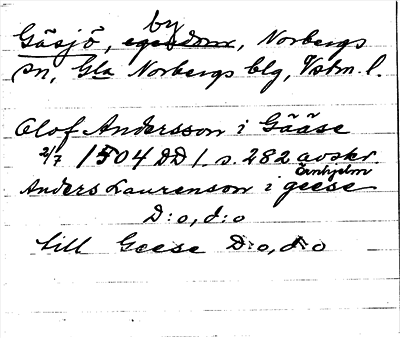 Gåsjö, by, Norbergs
sn, Gla Norbergs blg, Vstm. l.
Olof Andersson i Gååse
2/7 1504 DD 1. s. 282 avskr.
Örnhjelm
Anders Laurenson i geese
D:o, d:o
till Geese D:o, d:o